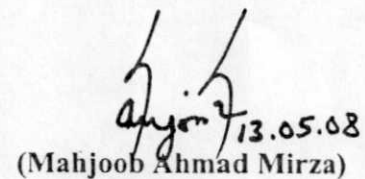 13.05.08
(Mahjoob Ahmad Mirza)